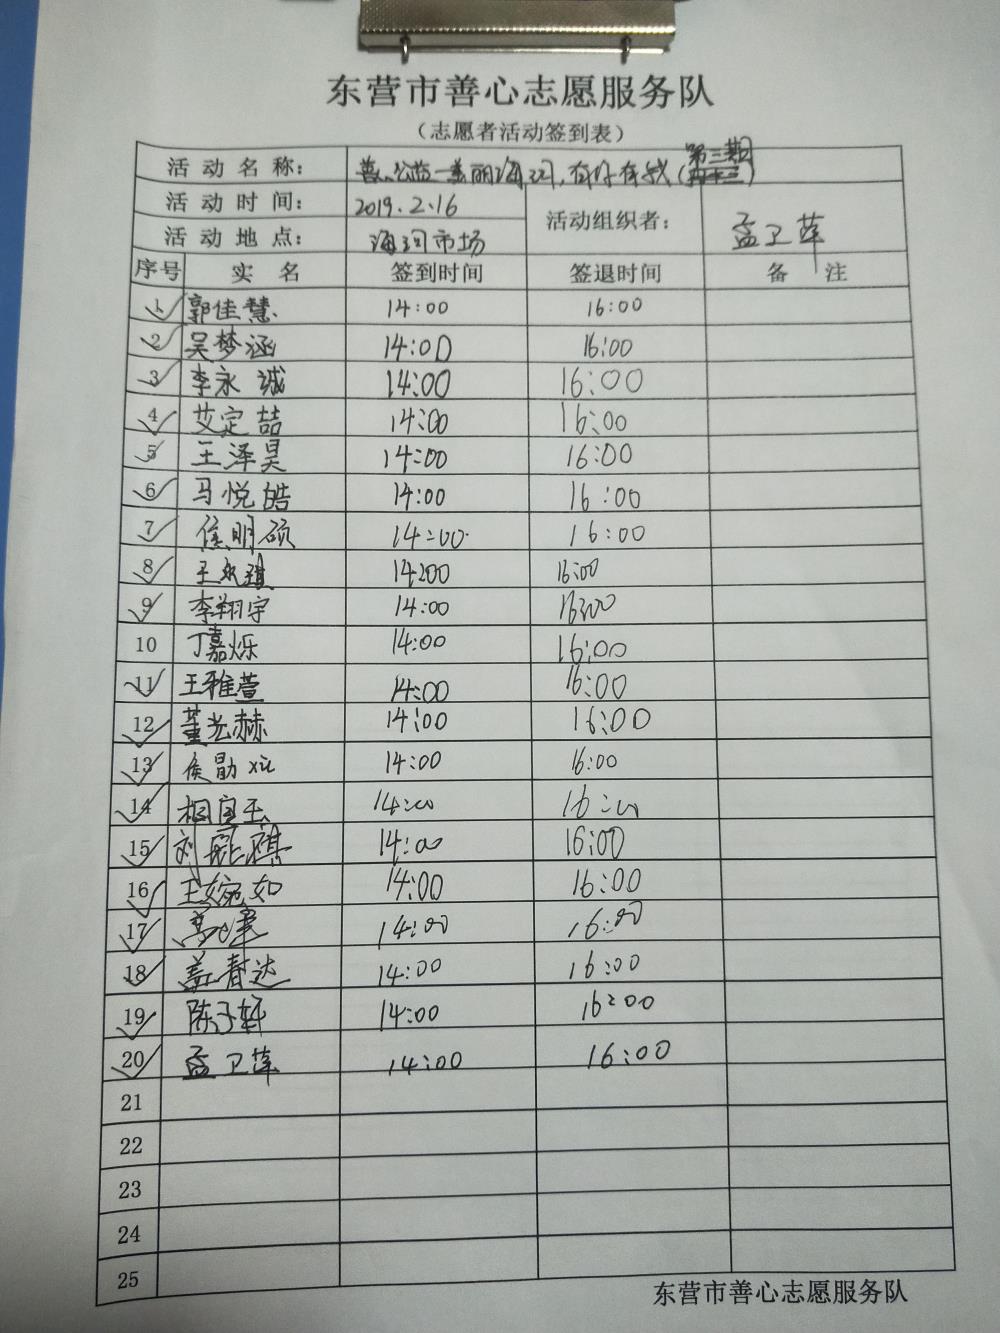 东营市善心志愿服务队
（志愿者活动签到表）
活动名称： 善心公益—美丽海河，有你有我（第三期）
活动时间： 2019.2.16 活动组织者： 孟卫萍
活动地点： 海河市场
序号 实名 签到时间 签退时间 备注
1 郭佳慧 14:00 16:00
2 吴梦涵 14:00 16:00
3 李永诚 14:00 16:00
4 艾定喆 14:00 16:00
5 王泽昊 14:00 16:00
6 马悦皓 14:00 16:00
7 侯明硕 14:00 16:00
8 14:00 16:00
9 李翔宇 14:00 16:00
10 丁嘉烁 14:00 16:00
11 王雅萱 14:00 16:00
12 董光赫 14:00 16:00
13 侯勋 14:00 16:00
14 14:00 16:00
15 刘 祺 14:00 16:00
16 王婉如 14:00 16:00
17 14:00 16:00
18 姜春达 14:00 16:00
19 陈子轩 14:00 16:00
20 孟卫萍 14:00 16:00
21
22
23
24
25
东营市善心志愿服务队